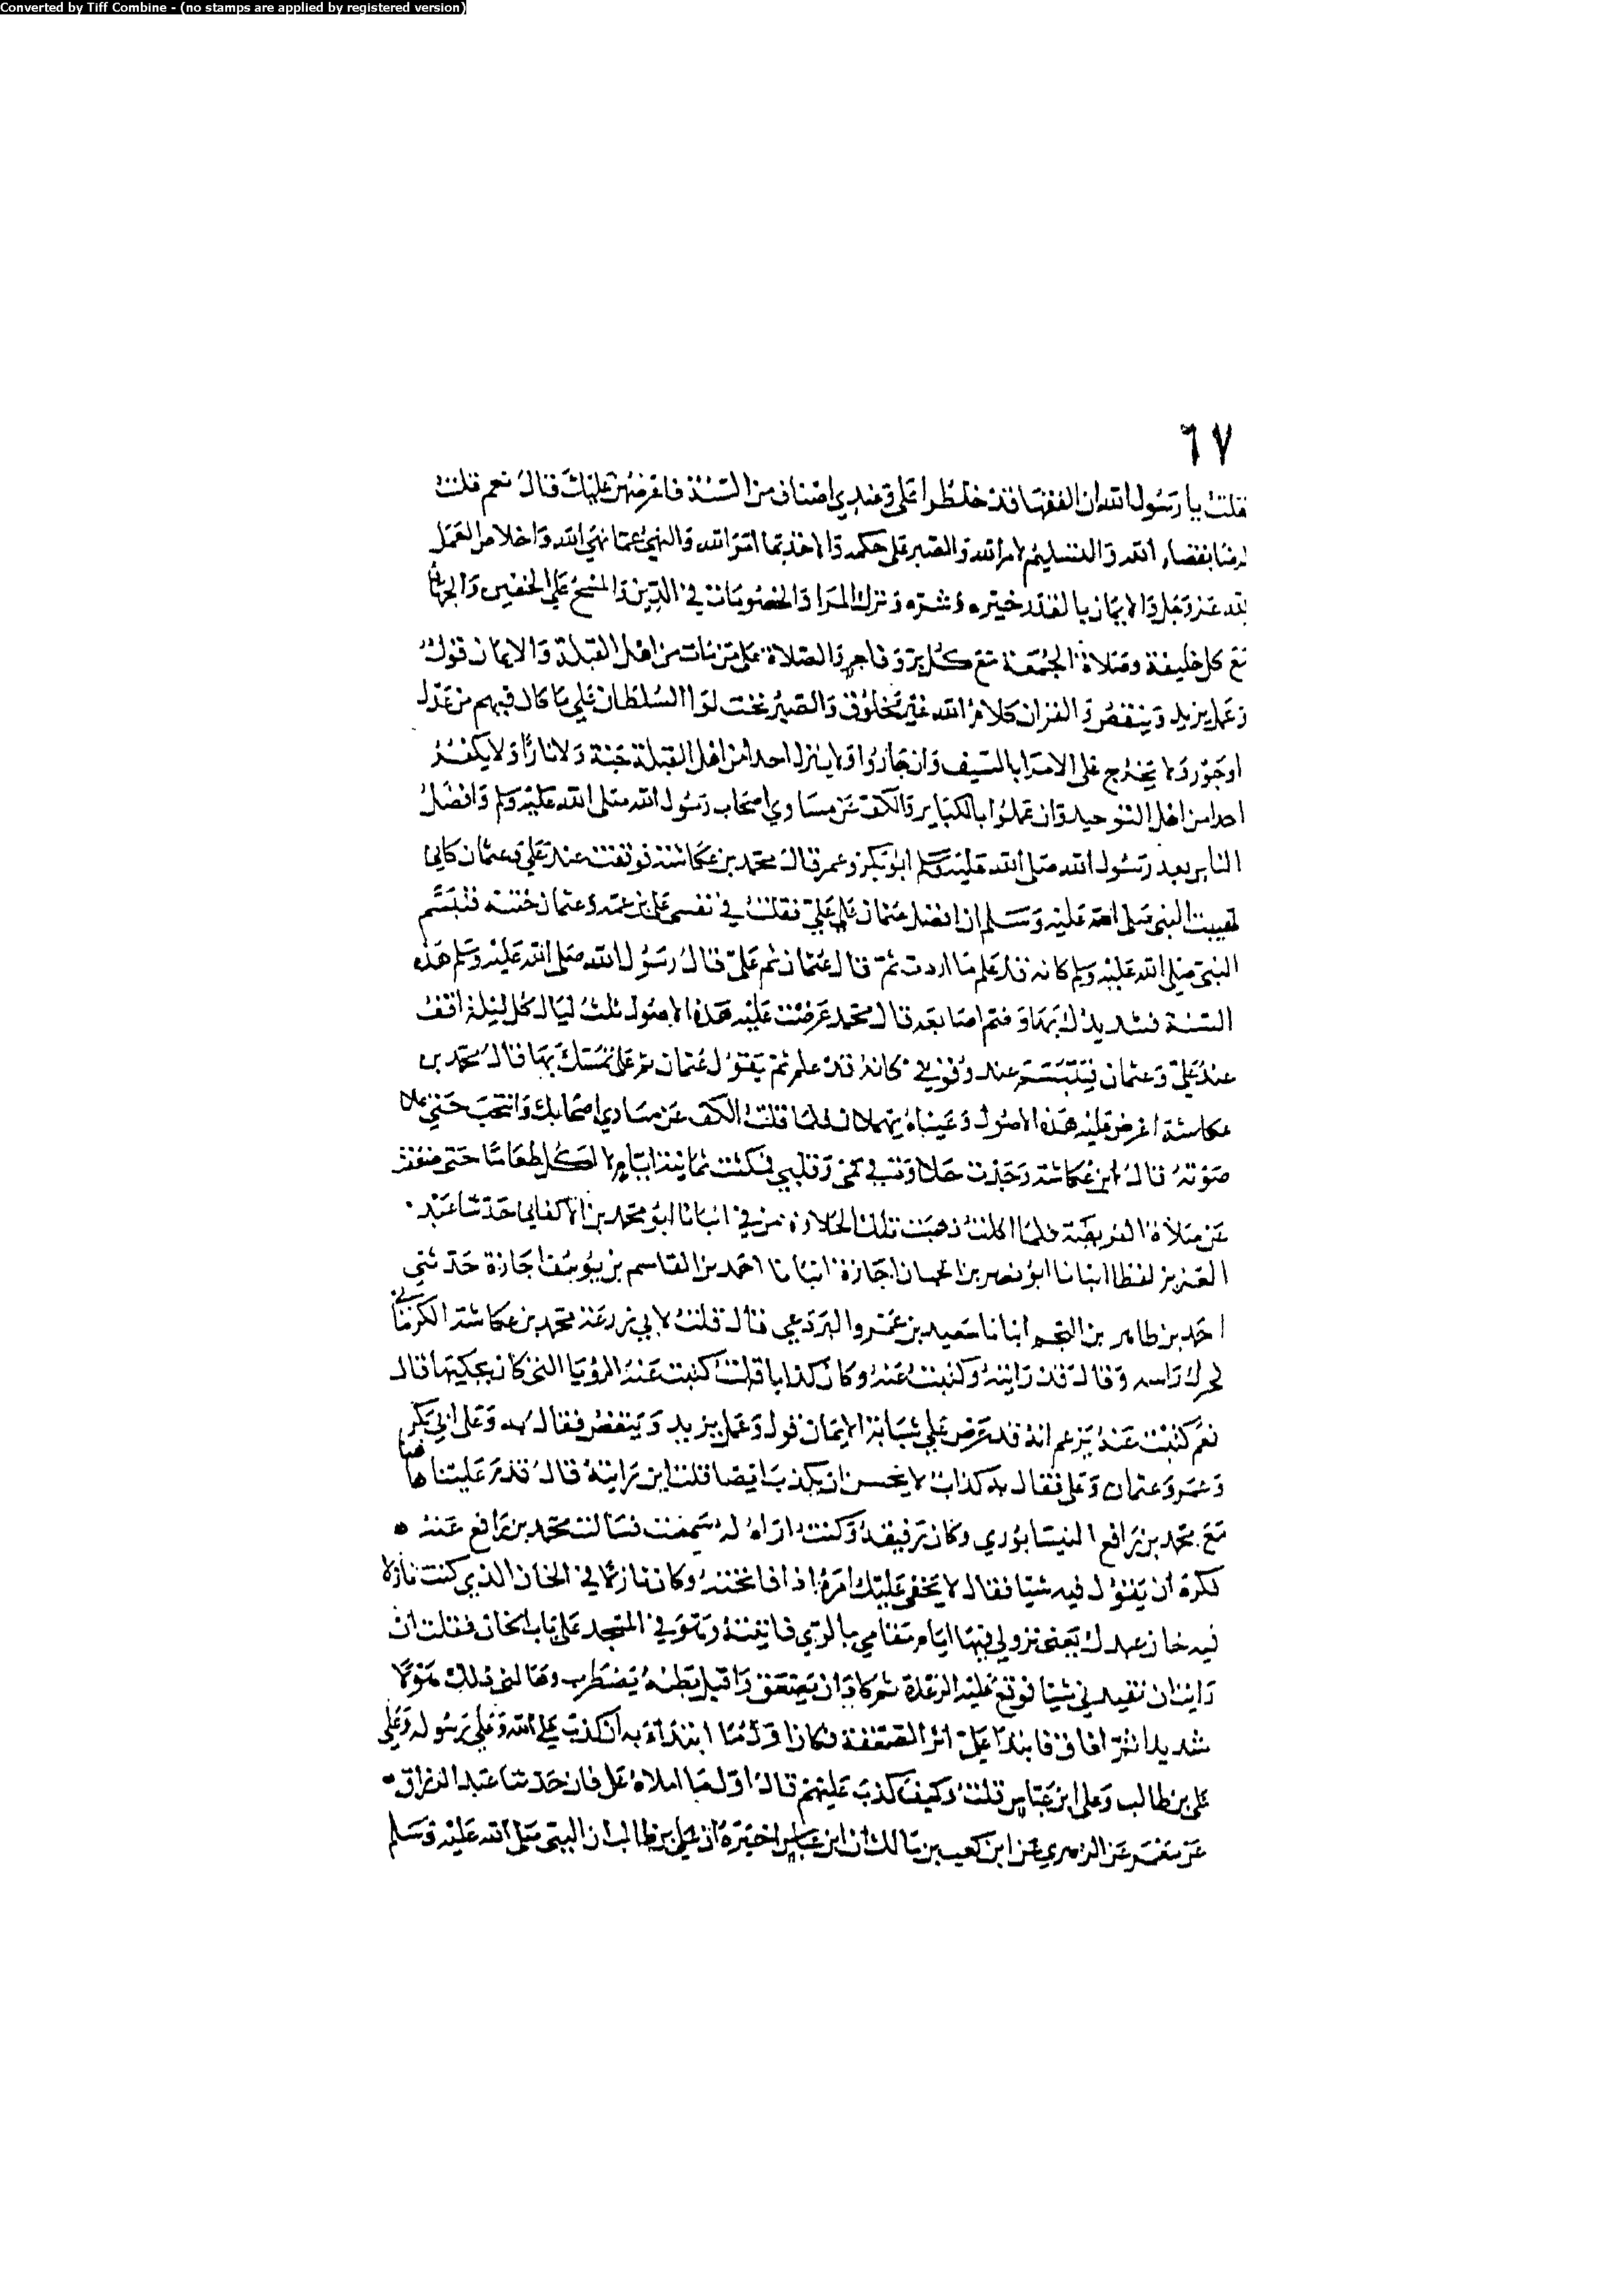 Converted by Tiff Combine - (no stamps are applied by registered version)
٦٧
فقلت يا رسول الله ان الفقها قد خلطوا على وعندي اصناف من السنة فاعرضهن عليك قال نعم قلت
الرضا بقضاء الله والتسليم لامر الله والصبر على حكمه والاخذ بما امر الله والنهي عما نهى الله واخلاص العمل
لله عز وجل والايمان بالقدر خيره وشره وترك المرا والخصومات في الدين والمسح على الخفين والجهاد
مع كل خليفة وصلاة الجمعة مع كل بر وفاجر والصلاة على من مات من اهل القبلة والايمان قول
وعمل يزيد وينقص والقران كلام الله غير مخلوق والصبر تحت لوا السلطان على ما كان فيهم من عدل
او جور ولا يخرج على الامرا بالسيف وان جاروا ولا ينزل احدا من اهل القبلة جنة ولا نارا ولا يكفر
احدا من اهل التوحيد وان عملوا بالكباير والكف عن مساوي اصحاب رسول الله صلى الله عليه وسلم وافضل
الناس بعد رسول الله صلى الله عليه وسلم ابو بكر وعمر قال محمد بن عكاشة فوقفت عند علي وعثمان كاني
تهيبت النبي صلى الله عليه وسلم ان افضل عثمان على علي فقلت في نفسي علي بن عمه وعثمان ختنه فتبسم
النبي صلى الله عليه وسلم كانه قد علم ما اردت ثم قال عثمان ثم علي قال رسول الله صلى الله عليه وسلم هذه
السنة فشد يدك بها وضم اصابعه قال محمد عرضت عليه هذه الاصول ثلث ليال كل ليلة اقف
عند علي وعثمان فيتبسم عند وقوفي كانه قد علم ثم يقول عثمان ثم علي تمسك بها قال محمد بن
عكاشة اعرض عليه هذه الاصول وعيناه تهملان فلما قلت الكف عن مساوي اصحابك وانتحب حتى علا
صوته قال ابن عكاشة وجدت حلاوة في فمي وقلبي فمكثت ثمانية ايام لا اكل طعاما حتى ضعفت
عن صلاة الفريضة فلما اكلت ذهبت تلك الحلاوة من في انبانا ابو محمد بن الاكفاني حدثنا عبد
العزيز لفظا انبانا ابو نصر بن الجبان اجازة انبانا احمد بن القاسم بن يوسف اجازة حدثني
احمد بن طاهر بن النجم انبانا سعيد بن عمرو البردعي قال قلت لابي زرعة محمد بن عكاشة الكرماني
فحرك راسه وقال قد رايته وكتبت عنه وكان كذابا قلت كتبت عنه الرؤيا التي كان يحكيها قال
نعم كتبت عنه يزعم انه قد عرض على شبابة الايمان قول وعمل يزيد وينقص فقال به وعلى ابي بكر
وعمر وعثمان وعلي فقال به كذاب لا يحسن ان يكذب ايضا قلت اين رايته قال قدم علينا هاهنا
مع محمد بن رافع النيسابوري وكان رفيقه وكنت اراه له سمت فسالت محمد بن رافع عنه
فكره ان يقول فيه شيا فقال لا يخفى عليك امره اذا فاتحته وكان نازلا في الخان الذي كنت نازلا
فيه خان عبدك يعني نزولي فيها ايام مقامي بالري فاتيته وهو في المسجد على باب الخان فقلت ان
رايت ان تفيدني شيا فوقع عليه الرعدة ثم كاد ان يصعق واقبل بطنه يضطرب وهالني ذلك هولا
شديدا ثم افاق فابتدا على اثر الصعقة فكان اول ما ابتدا به ان كذب على الله وعلى رسوله وعلى
علي بن طالب وعلى ابن عباس قلت وكيف كذب عليهم قال اول ما املاه علي فان حدثنا عبد الرزاق
عن معمر عن الزهري عن ابن كعب بن مالك ان ابن عباس اخبره ان علي بن طالب ان النبي صلى الله عليه وسلم